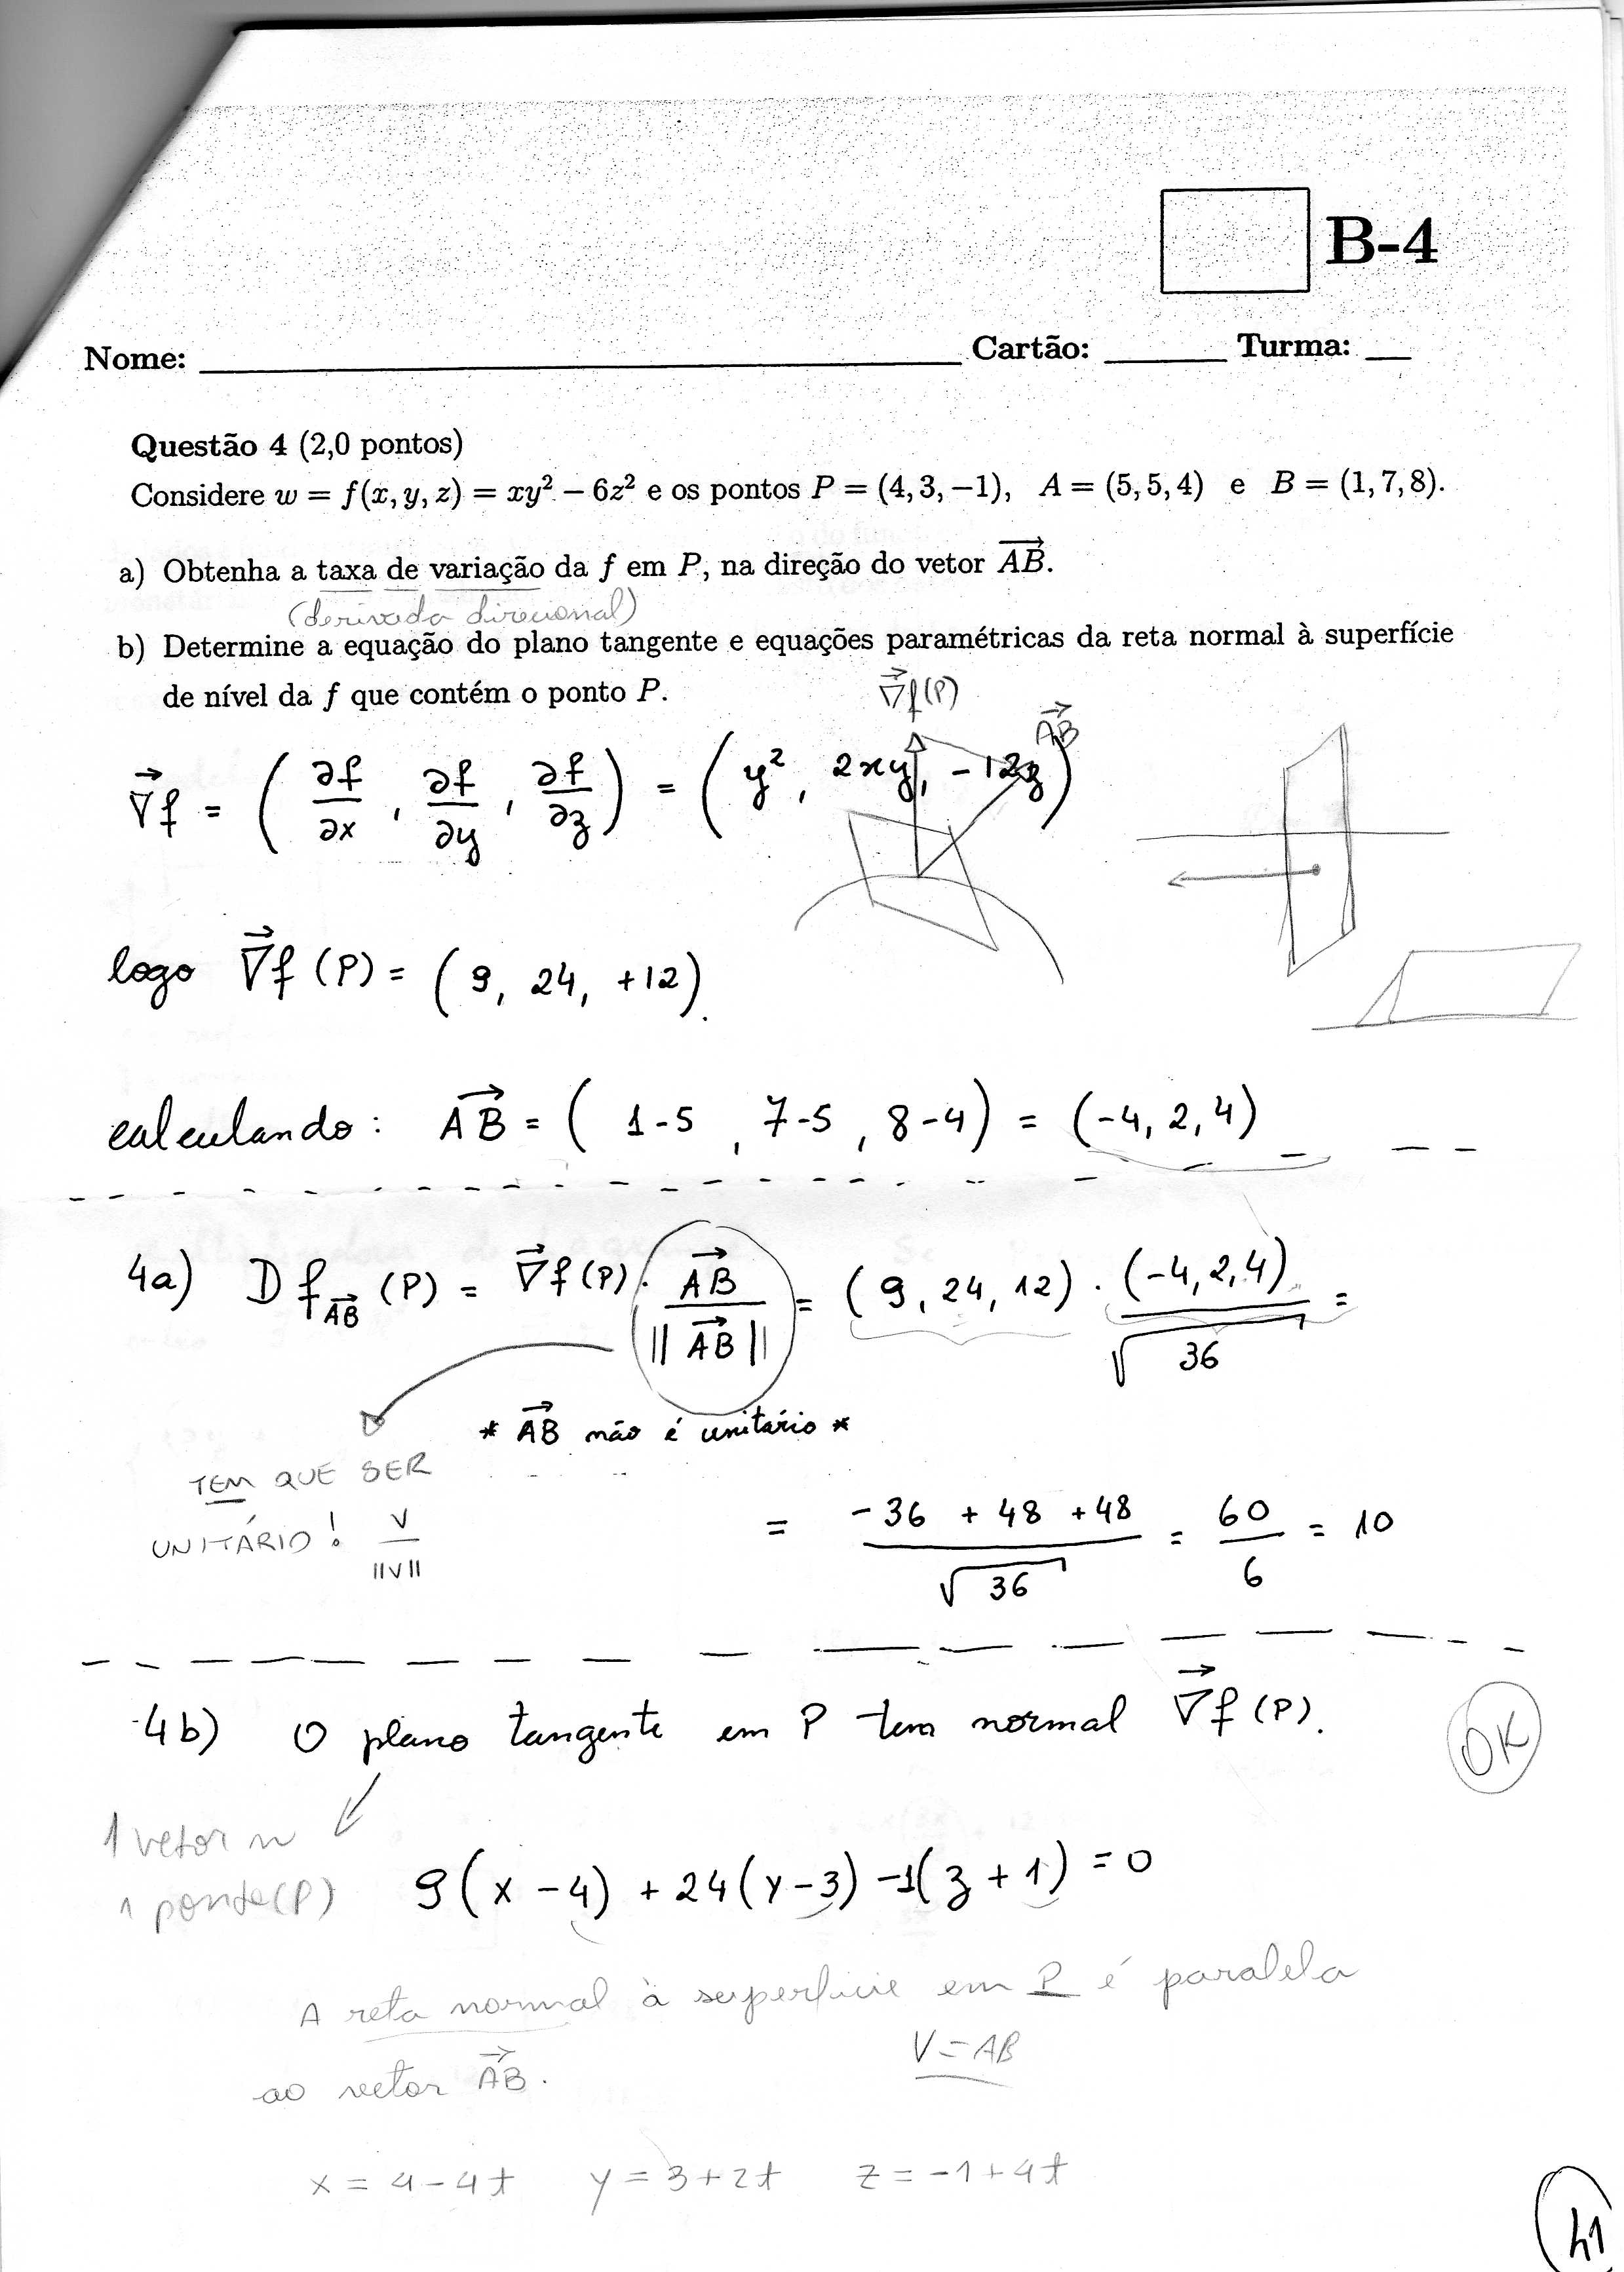 B-4
Nome: ____ Cartão: ____ Turma: ____
Questão 4 (2,0 pontos)
Considere w = f(x, y, z) = xy² − 6z² e os pontos P = (4, 3, −1), A = (5, 5, 4) e B = (1, 7, 8).
a) Obtenha a taxa de variação da f em P, na direção do vetor \overrightarrow{AB}.
(derivada direcional)
b) Determine a equação do plano tangente e equações paramétricas da reta normal à superfície
de nível da f que contém o ponto P.
\vec{∇}f(P)
\overrightarrow{AB}
\vec{∇}f = (∂f/∂x, ∂f/∂y, ∂f/∂z) = (y², 2xy, −12z)
logo \vec{∇}f(P) = (9, 24, +12).
calculando: \overrightarrow{AB} = (1-5, 7-5, 8-4) = (-4, 2, 4)
4a) D f_{\overrightarrow{AB}} (P) = \vec{∇}f(P) · \overrightarrow{AB} / ||\overrightarrow{AB}|| = (9, 24, 12) · (-4, 2, 4) / √36 =
* \overrightarrow{AB} não é unitário *
TEM QUE SER
UNITÁRIO! V / ||V||
= (-36 + 48 + 48) / √36 = 60/6 = 10
4b) O plano tangente em P tem normal \vec{∇}f(P).
OK
1 vetor n
1 ponto(P)
9(x-4) + 24(y-3) -1(z+1) = 0
A reta normal à superfície em P é paralela
V = AB
ao vetor \overrightarrow{AB}.
x = 4-4t y = 3+2t z = -1+4t